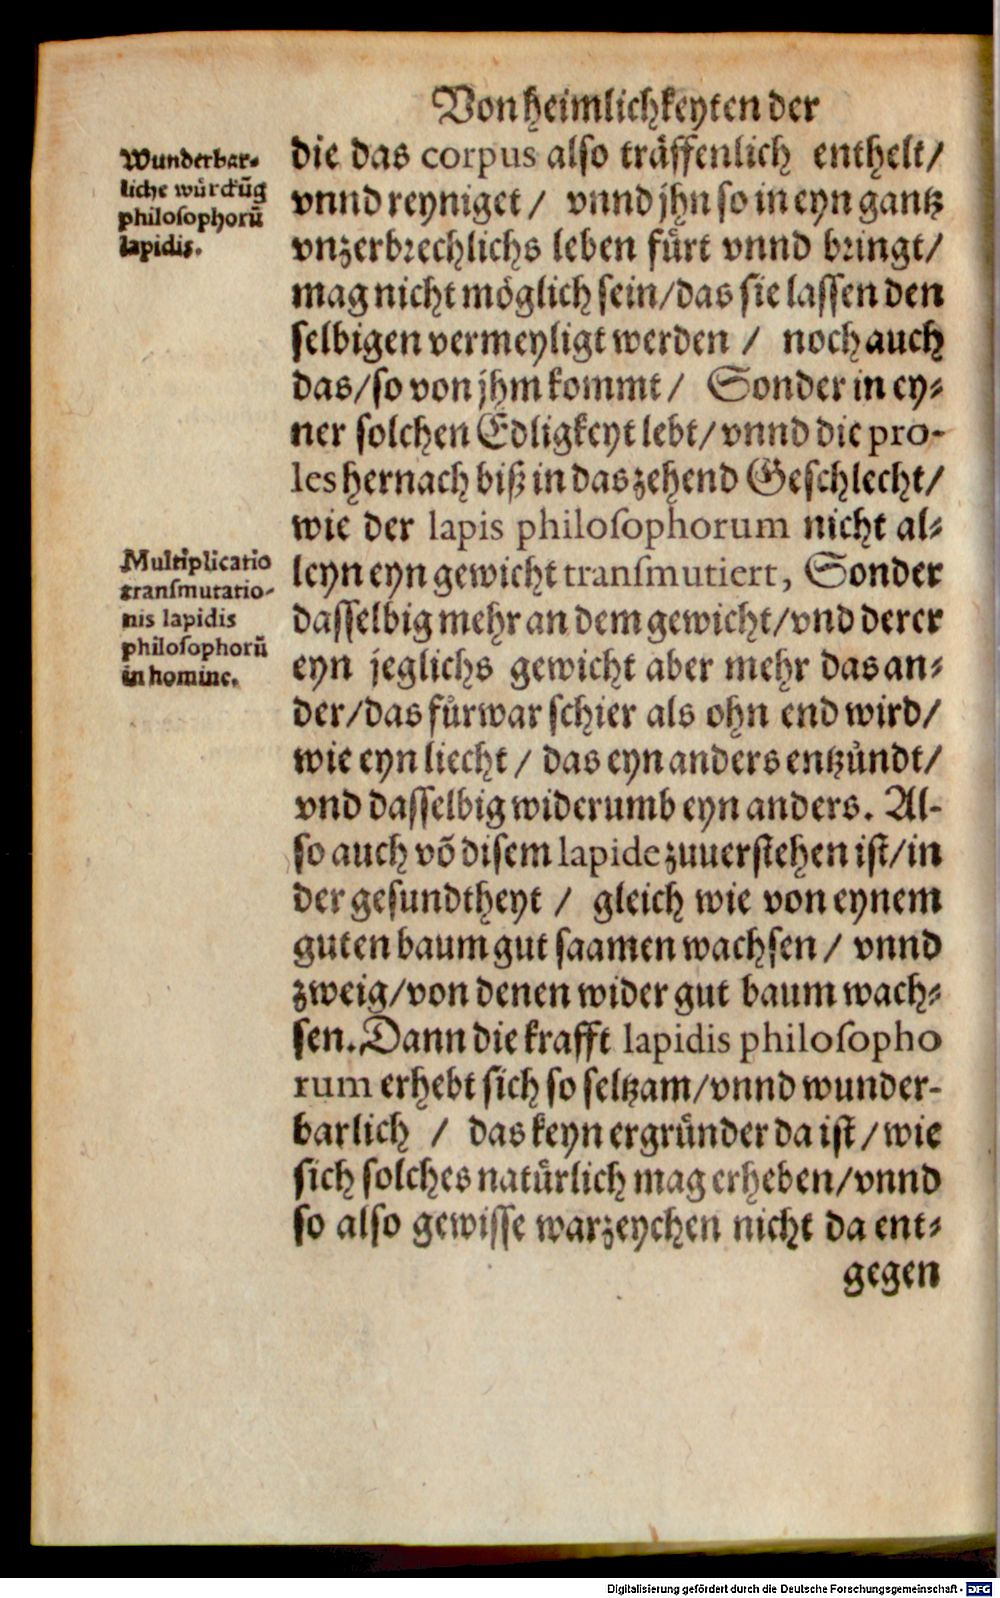 Von heimlichkeyten der
Wunderbar⸗
liche wuͤrckũg
philosophorũ
lapidis.
die das corpus also traͤffenlich enthelt/
vnnd reyniget / vnnd jhn so in eyn gantz
vnzerbrechlichs leben fuͤrt vnnd bringt/
mag nicht moͤglich sein/das sie lassen den
selbigen vermeyligt werden / noch auch
das/so von jhm kommt / Sonder in ey⸗
ner solchen Edligkeyt lebt/vnnd die pro-
les hernach biß in das zehend Geschlecht/
wie der lapis philoſophorum nicht al⸗
Multiplicatio
tranſmutatio-
nis lapidis
philoſophorũ
in homine.
leyn eyn gewicht tranſmutiert, Sonder
dasselbig mehr an dem gewicht/vnd derer
eyn jeglichs gewicht aber mehr das an⸗
der/das fuͤrwar schier als ohn end wird/
wie eyn liecht / das eyn anders entzuͤndt/
vnd dasselbig widerumb eyn anders. Al-
so auch võ disem lapide zuuerstehen ist/in
der gesundtheyt / gleich wie von eynem
guten baum gut saamen wachsen / vnnd
zweig/von denen wider gut baum wach⸗
sen. Dann die krafft lapidis philoſopho
rum erhebt sich so seltzam/vnnd wunder-
barlich / das keyn ergruͤnder da ist / wie
sich solches natuͤrlich mag erheben/vnnd
so also gewisse warzeychen nicht da ent⸗
gegen
Digitalisierung gefördert durch die Deutsche Forschungsgemeinschaft - DFG